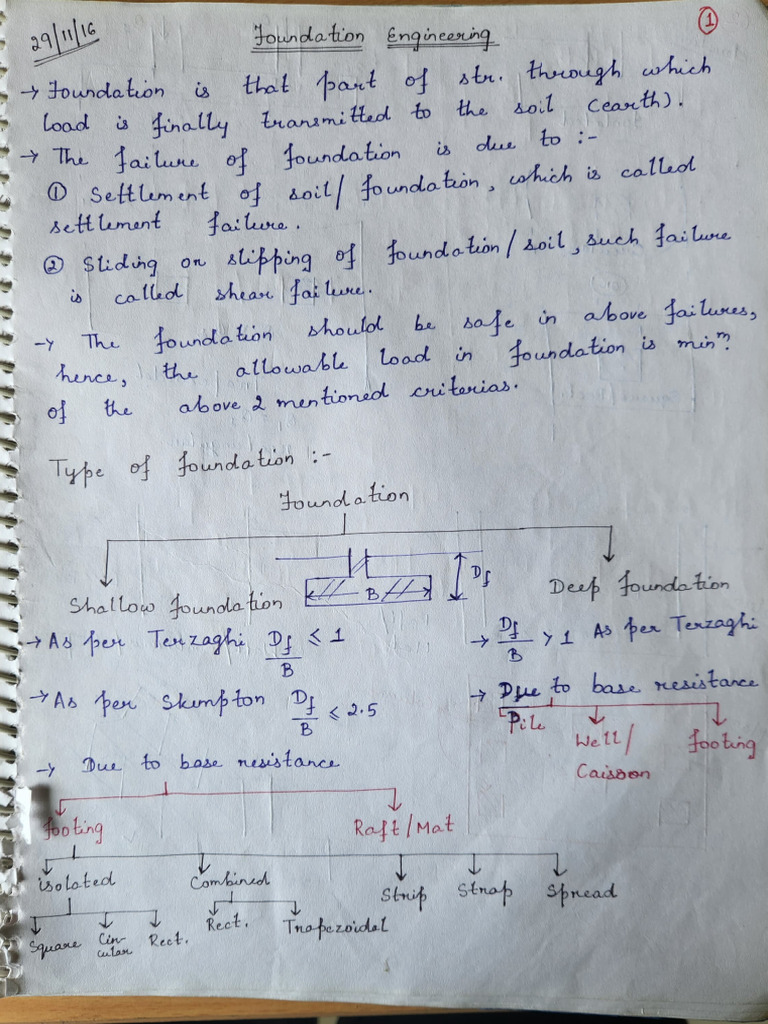 29/11/16
Foundation Engineering
1
→ Foundation is that part of str. through which
load is finally transmitted to the soil (earth).
→ The failure of foundation is due to :-
① Settlement of soil/foundation, which is called
settlement failure.
② Sliding or slipping of foundation/soil, such failure
is called shear failure.
→ The foundation should be safe in above failures,
hence, the allowable load in foundation is minᵐ.
of the above 2 mentioned criterias.
Type of foundation :-
Foundation
Shallow foundation
B
Df
Deep foundation
→ As per Terzaghi Df/B ≤ 1
→ Df/B > 1 As per Terzaghi
→ As per Skempton Df/B ≤ 2.5
→ Due to base resistance
Pile
Well/
Caisson
footing
→ Due to base resistance
footing
Raft/Mat
isolated
Combined
Strip
Strap
Spread
Square
Cir-
cular
Rect.
Rect.
Trapezoidal